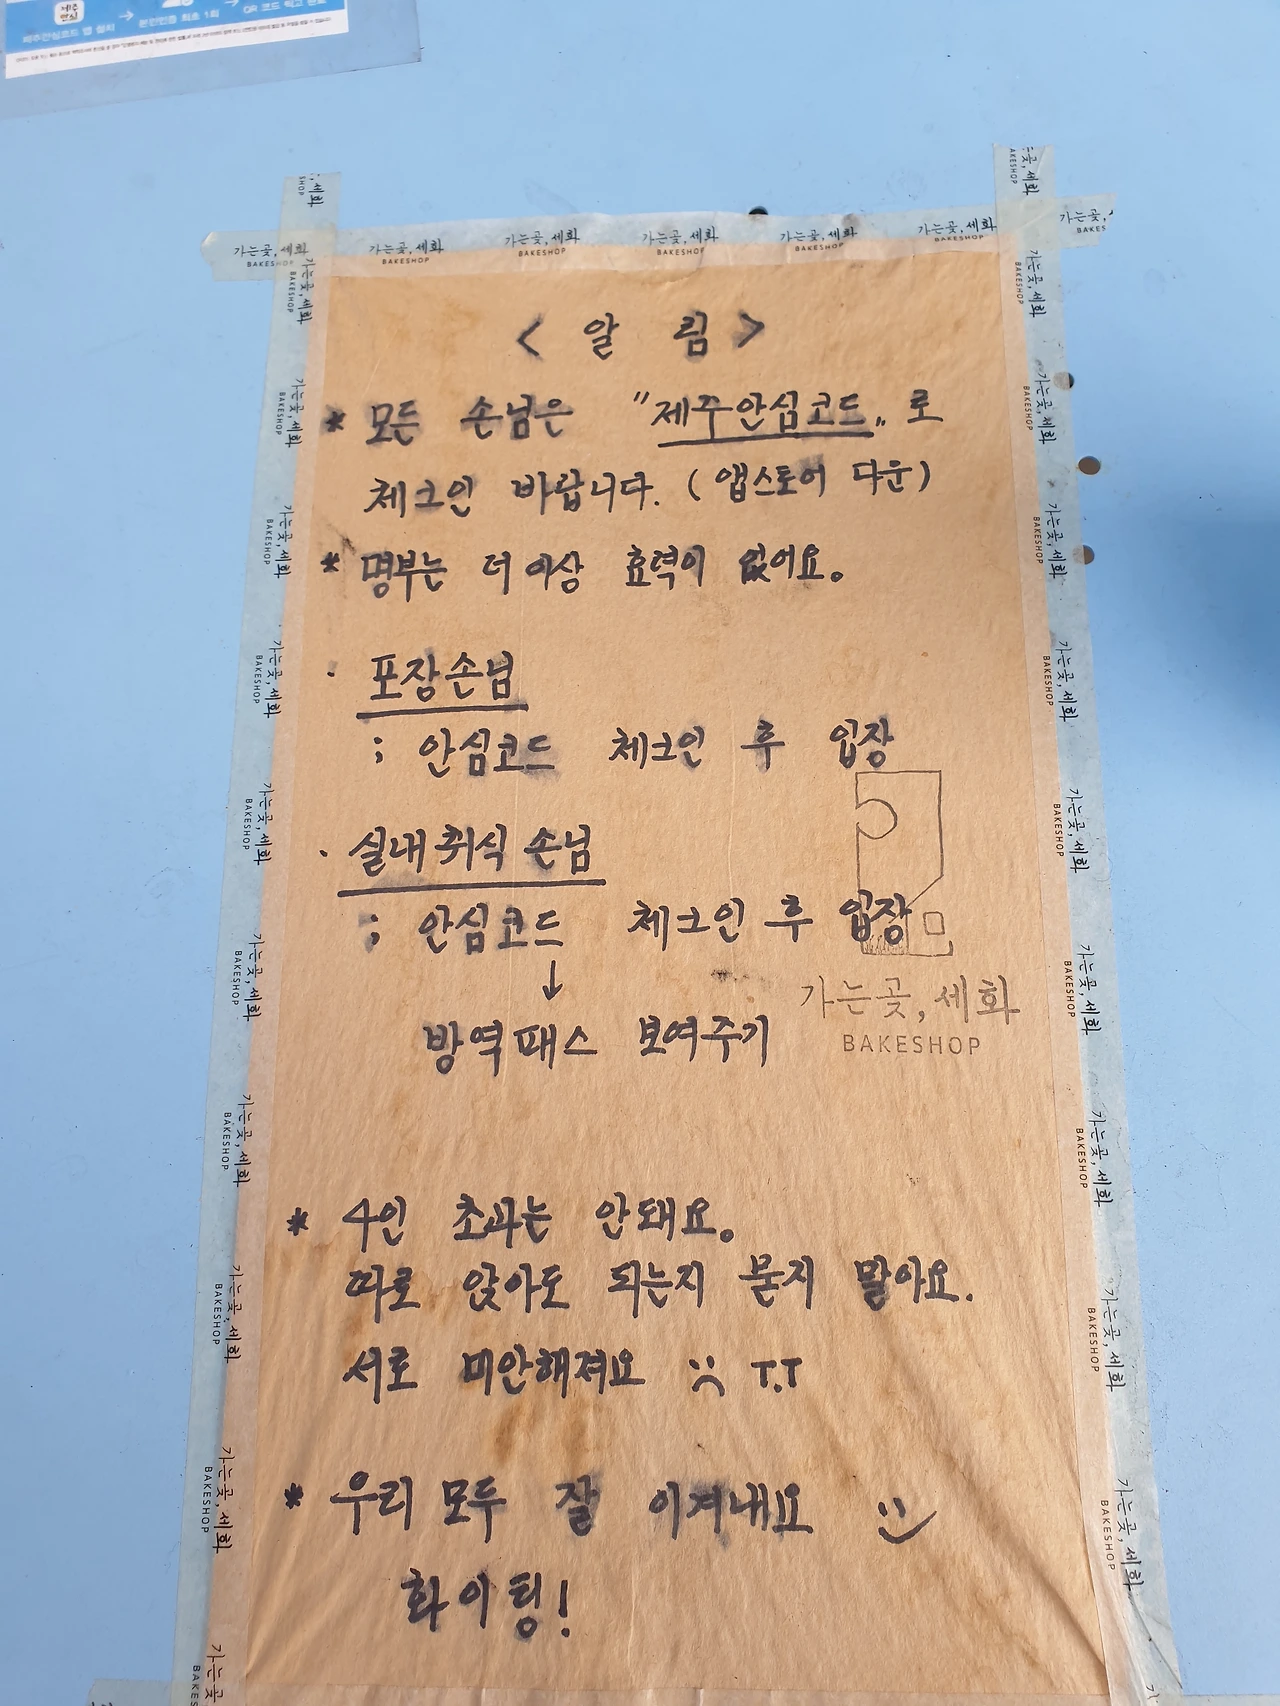 제주
안심
제주안심코드 앱 설치 → 본인인증 최초 1회 → QR 코드 찍고 완료
가는곶, 세화
BAKESHOP
< 알 림 >
* 모든 손님은 "제주안심코드" 로
체크인 바랍니다. (앱스토어 다운)
* 명부는 더 이상 효력이 없어요.
· 포장손님
; 안심코드 체크인 후 입장
· 실내취식 손님
; 안심코드 체크인 후 입장
↓
방역패스 보여주기
가는곶, 세화
BAKESHOP
* 4인 초과는 안돼요.
따로 앉아도 되는지 묻지 말아요.
서로 미안해져요 :( T.T
* 우리 모두 잘 이겨내요 :)
화이팅!